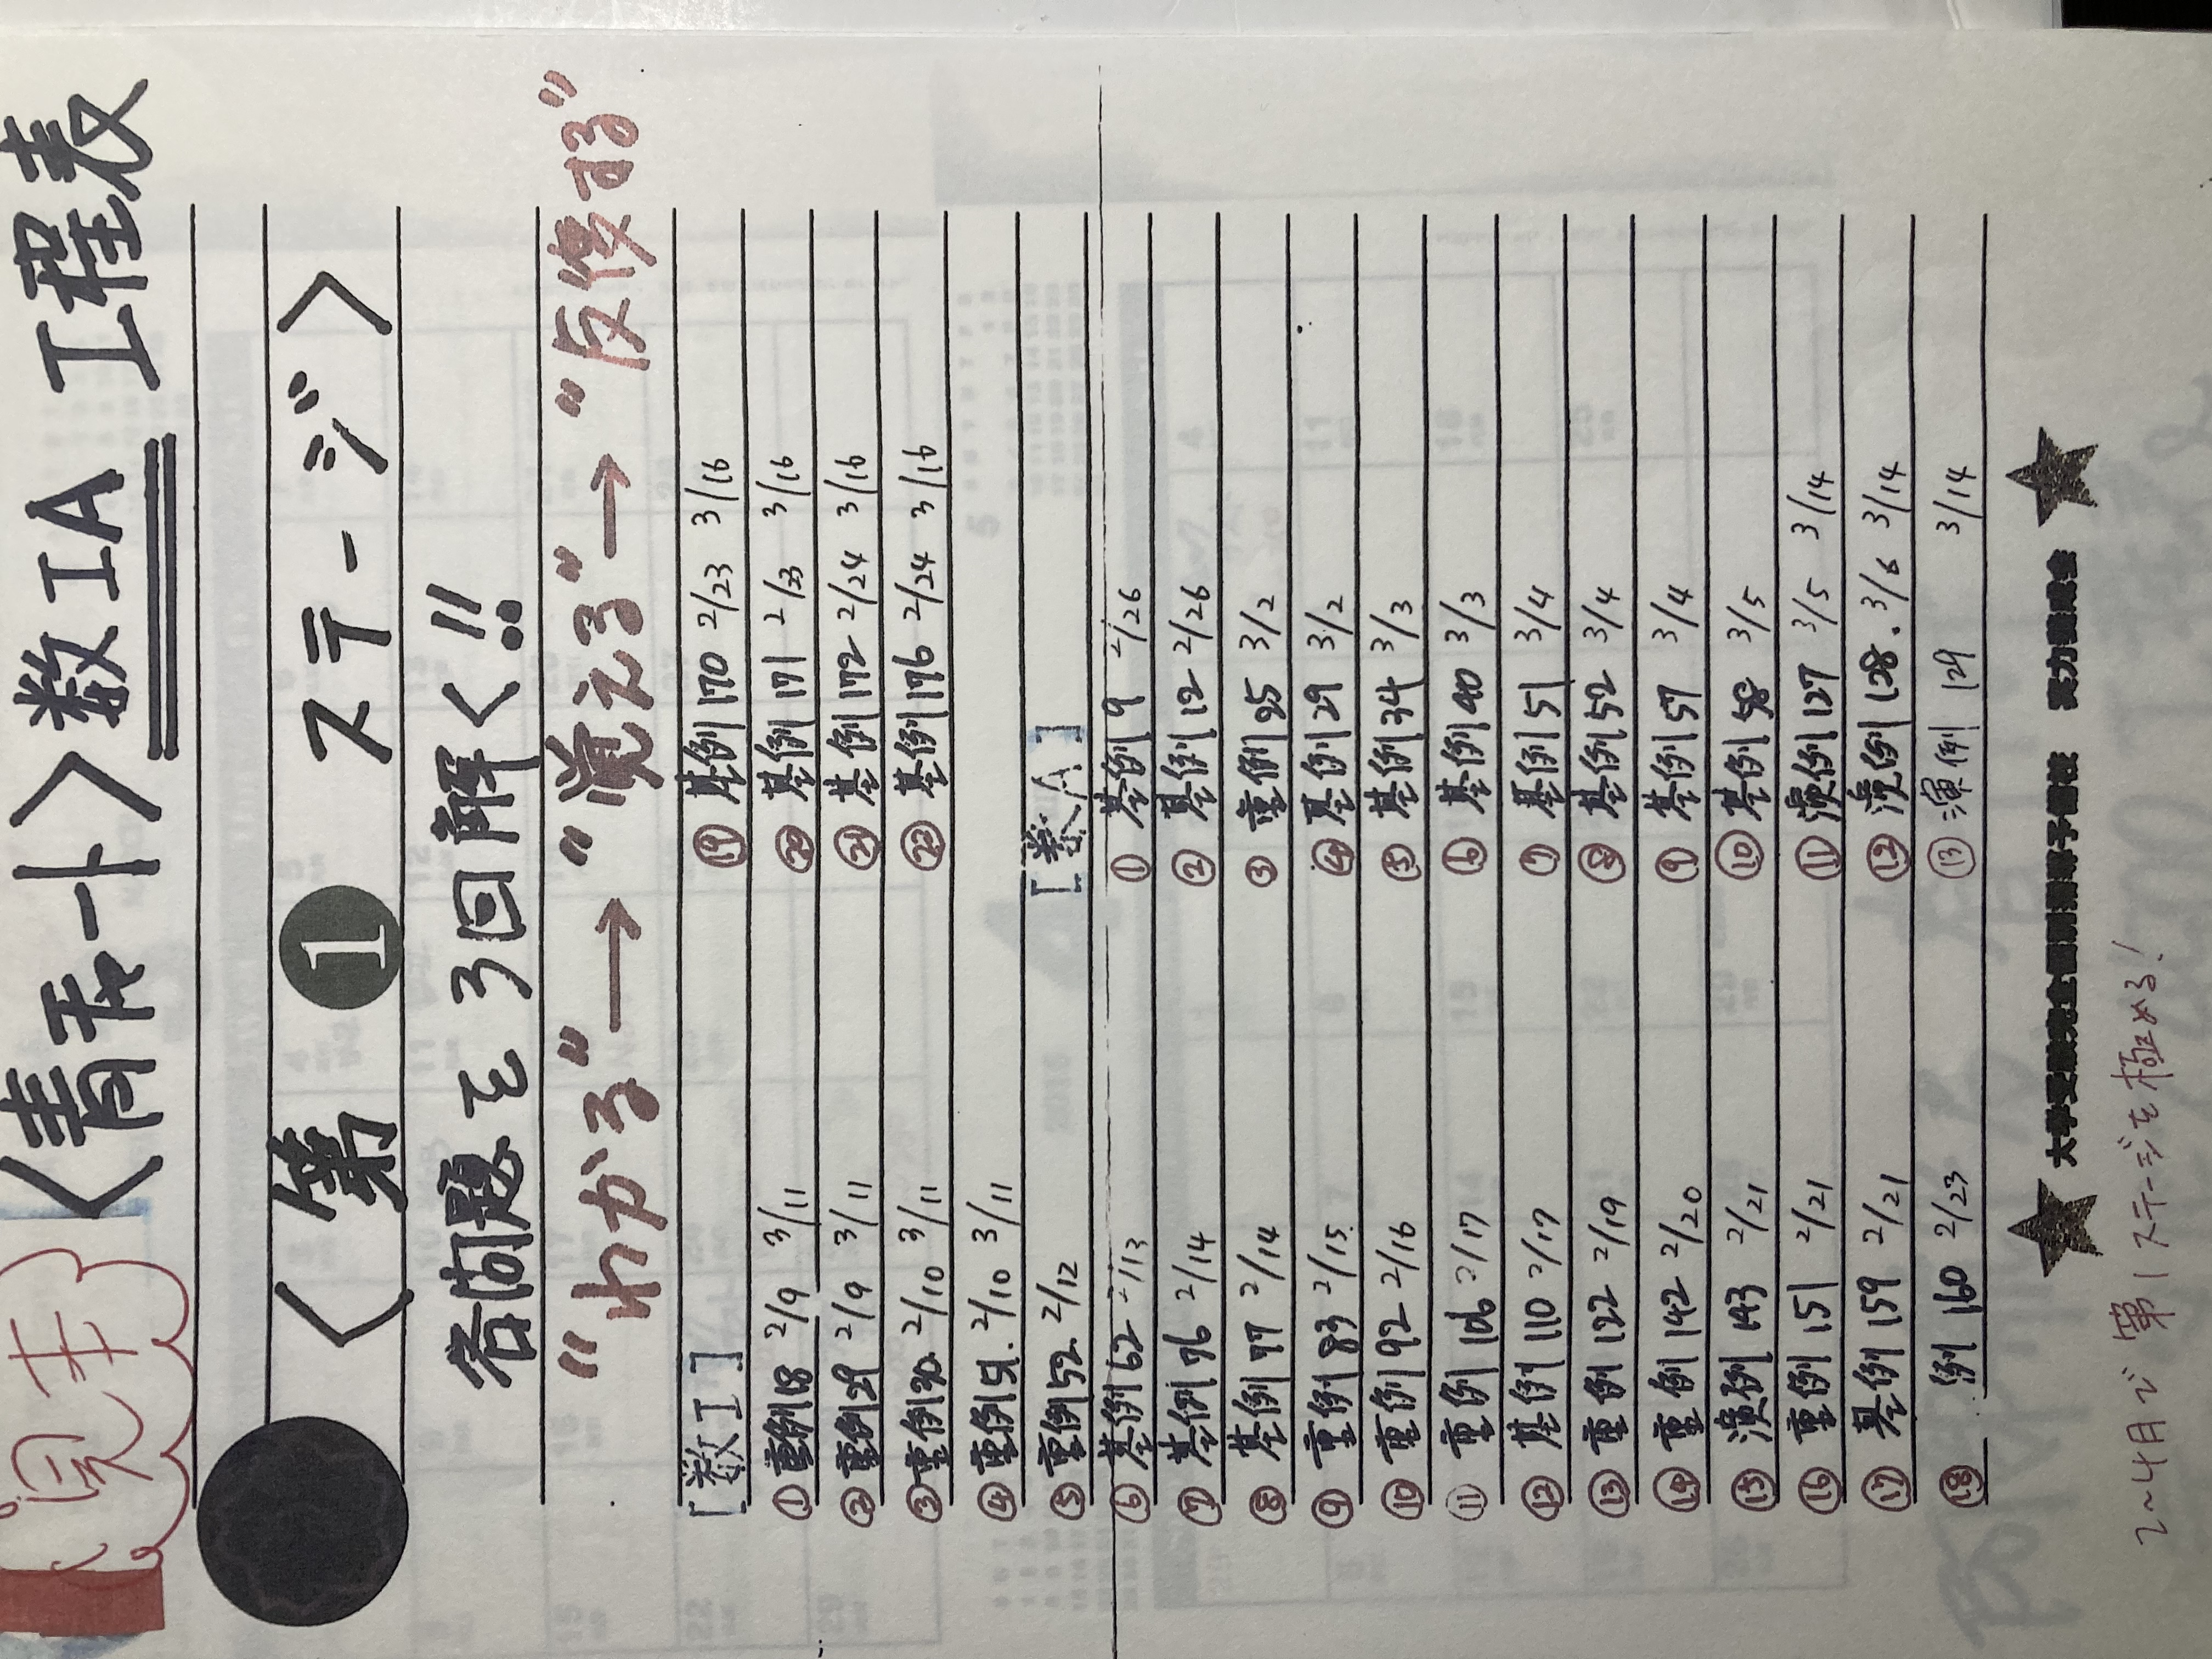 <青チャート>数IA 工程表
<第1ステージ>
各問題を3回解く!!
"わかる"→"覚える"→"反復する"
[数I]
① 重例18 2/9 3/11
② 重例29 2/9 3/11
③ 重例30 2/10 3/11
④ 重例51 2/10 3/11
⑤ 重例52 2/12
⑥ 基例62 2/13
⑦ 基例76 2/14
⑧ 基例77 2/14
⑨ 重例83 2/15
⑩ 重例92 2/16
⑪ 重例106 2/17
⑫ 基例110 2/17
⑬ 重例122 2/19
⑭ 重例142 2/20
⑮ 演例143 2/21
⑯ 重例151 2/21
⑰ 基例159 2/21
⑱ 例160 2/23
⑲ 基例170 2/23 3/16
⑳ 基例171 2/23 3/16
㉑ 基例172 2/24 3/16
㉒ 基例176 2/24 3/16
[数A]
① 基例9 2/26
② 基例12 2/26
③ 重例25 3/2
④ 基例29 3/2
⑤ 基例34 3/3
⑥ 基例40 3/3
⑦ 基例51 3/4
⑧ 基例52 3/4
⑨ 基例57 3/4
⑩ 基例58 3/5
⑪ 演例127 3/5 3/14
⑫ 演例128 3/6 3/14
⑬ 演例129 3/14
★ 大学受験完全個別指導予備校 実力養成会 ★
2~4月で第1ステージを極める!